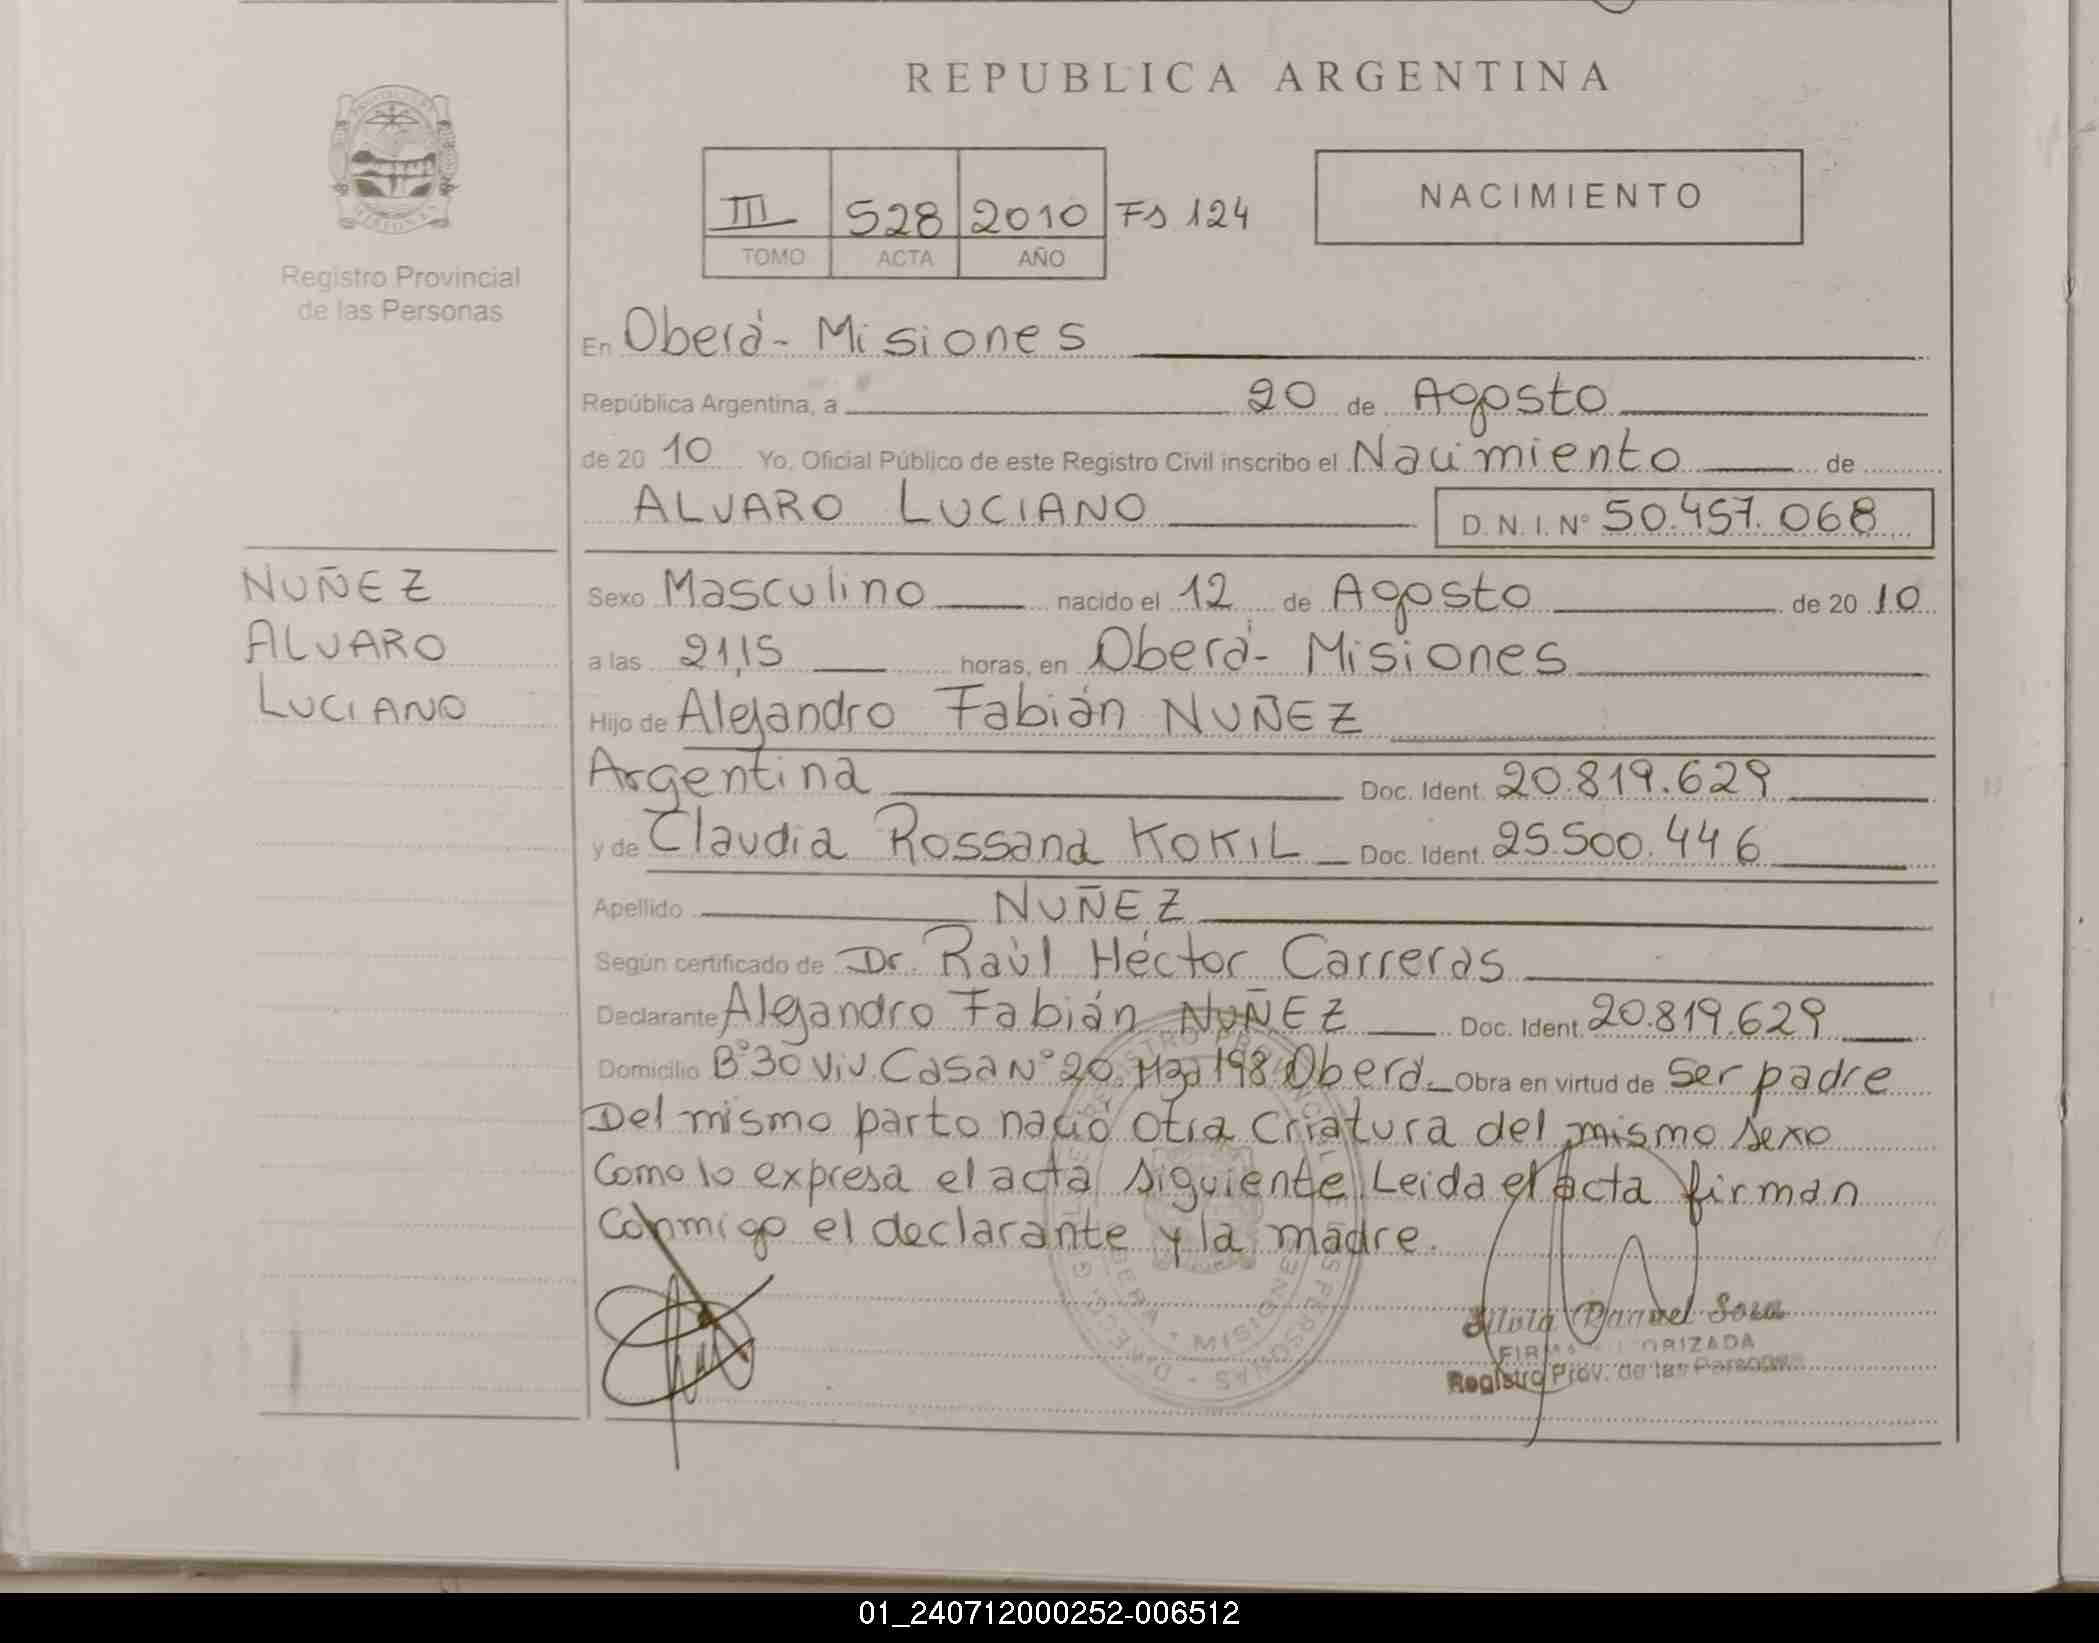 REPUBLICA ARGENTINA
III 528 2010 Fs 124
TOMO ACTA AÑO
NACIMIENTO
Registro Provincial
de las Personas
En Oberá - Misiones
República Argentina, a 20 de Agosto
de 20 10 Yo, Oficial Público de este Registro Civil inscribo el Nacimiento de
ALVARO LUCIANO D.N.I. Nº 50.457.068
NUÑEZ
ALVARO
LUCIANO
Sexo Masculino nacido el 12 de Agosto de 20 10
a las 21,15 horas, en Oberá - Misiones
Hijo de Alejandro Fabián NUÑEZ
Argentina Doc. Ident. 20.819.629
y de Claudia Rossana KOKIL Doc. Ident. 25.500.446
Apellido NUÑEZ
Según certificado de Dr. Raúl Héctor Carreras
Declarante Alejandro Fabián NUÑEZ Doc. Ident. 20.819.629
Domicilio Bº 30 Viv. Casa Nº 20. Mza 198 Oberá Obra en virtud de ser padre
Del mismo parto nació otra criatura del mismo sexo
como lo expresa el acta siguiente Leida el acta firman
conmigo el declarante y la madre.
MISIONES
Registro Prov. de las Personas
01_240712000252-006512